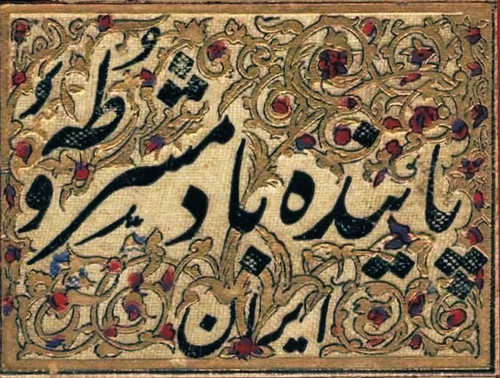 پاینده باد مشروطهٔ
ایران